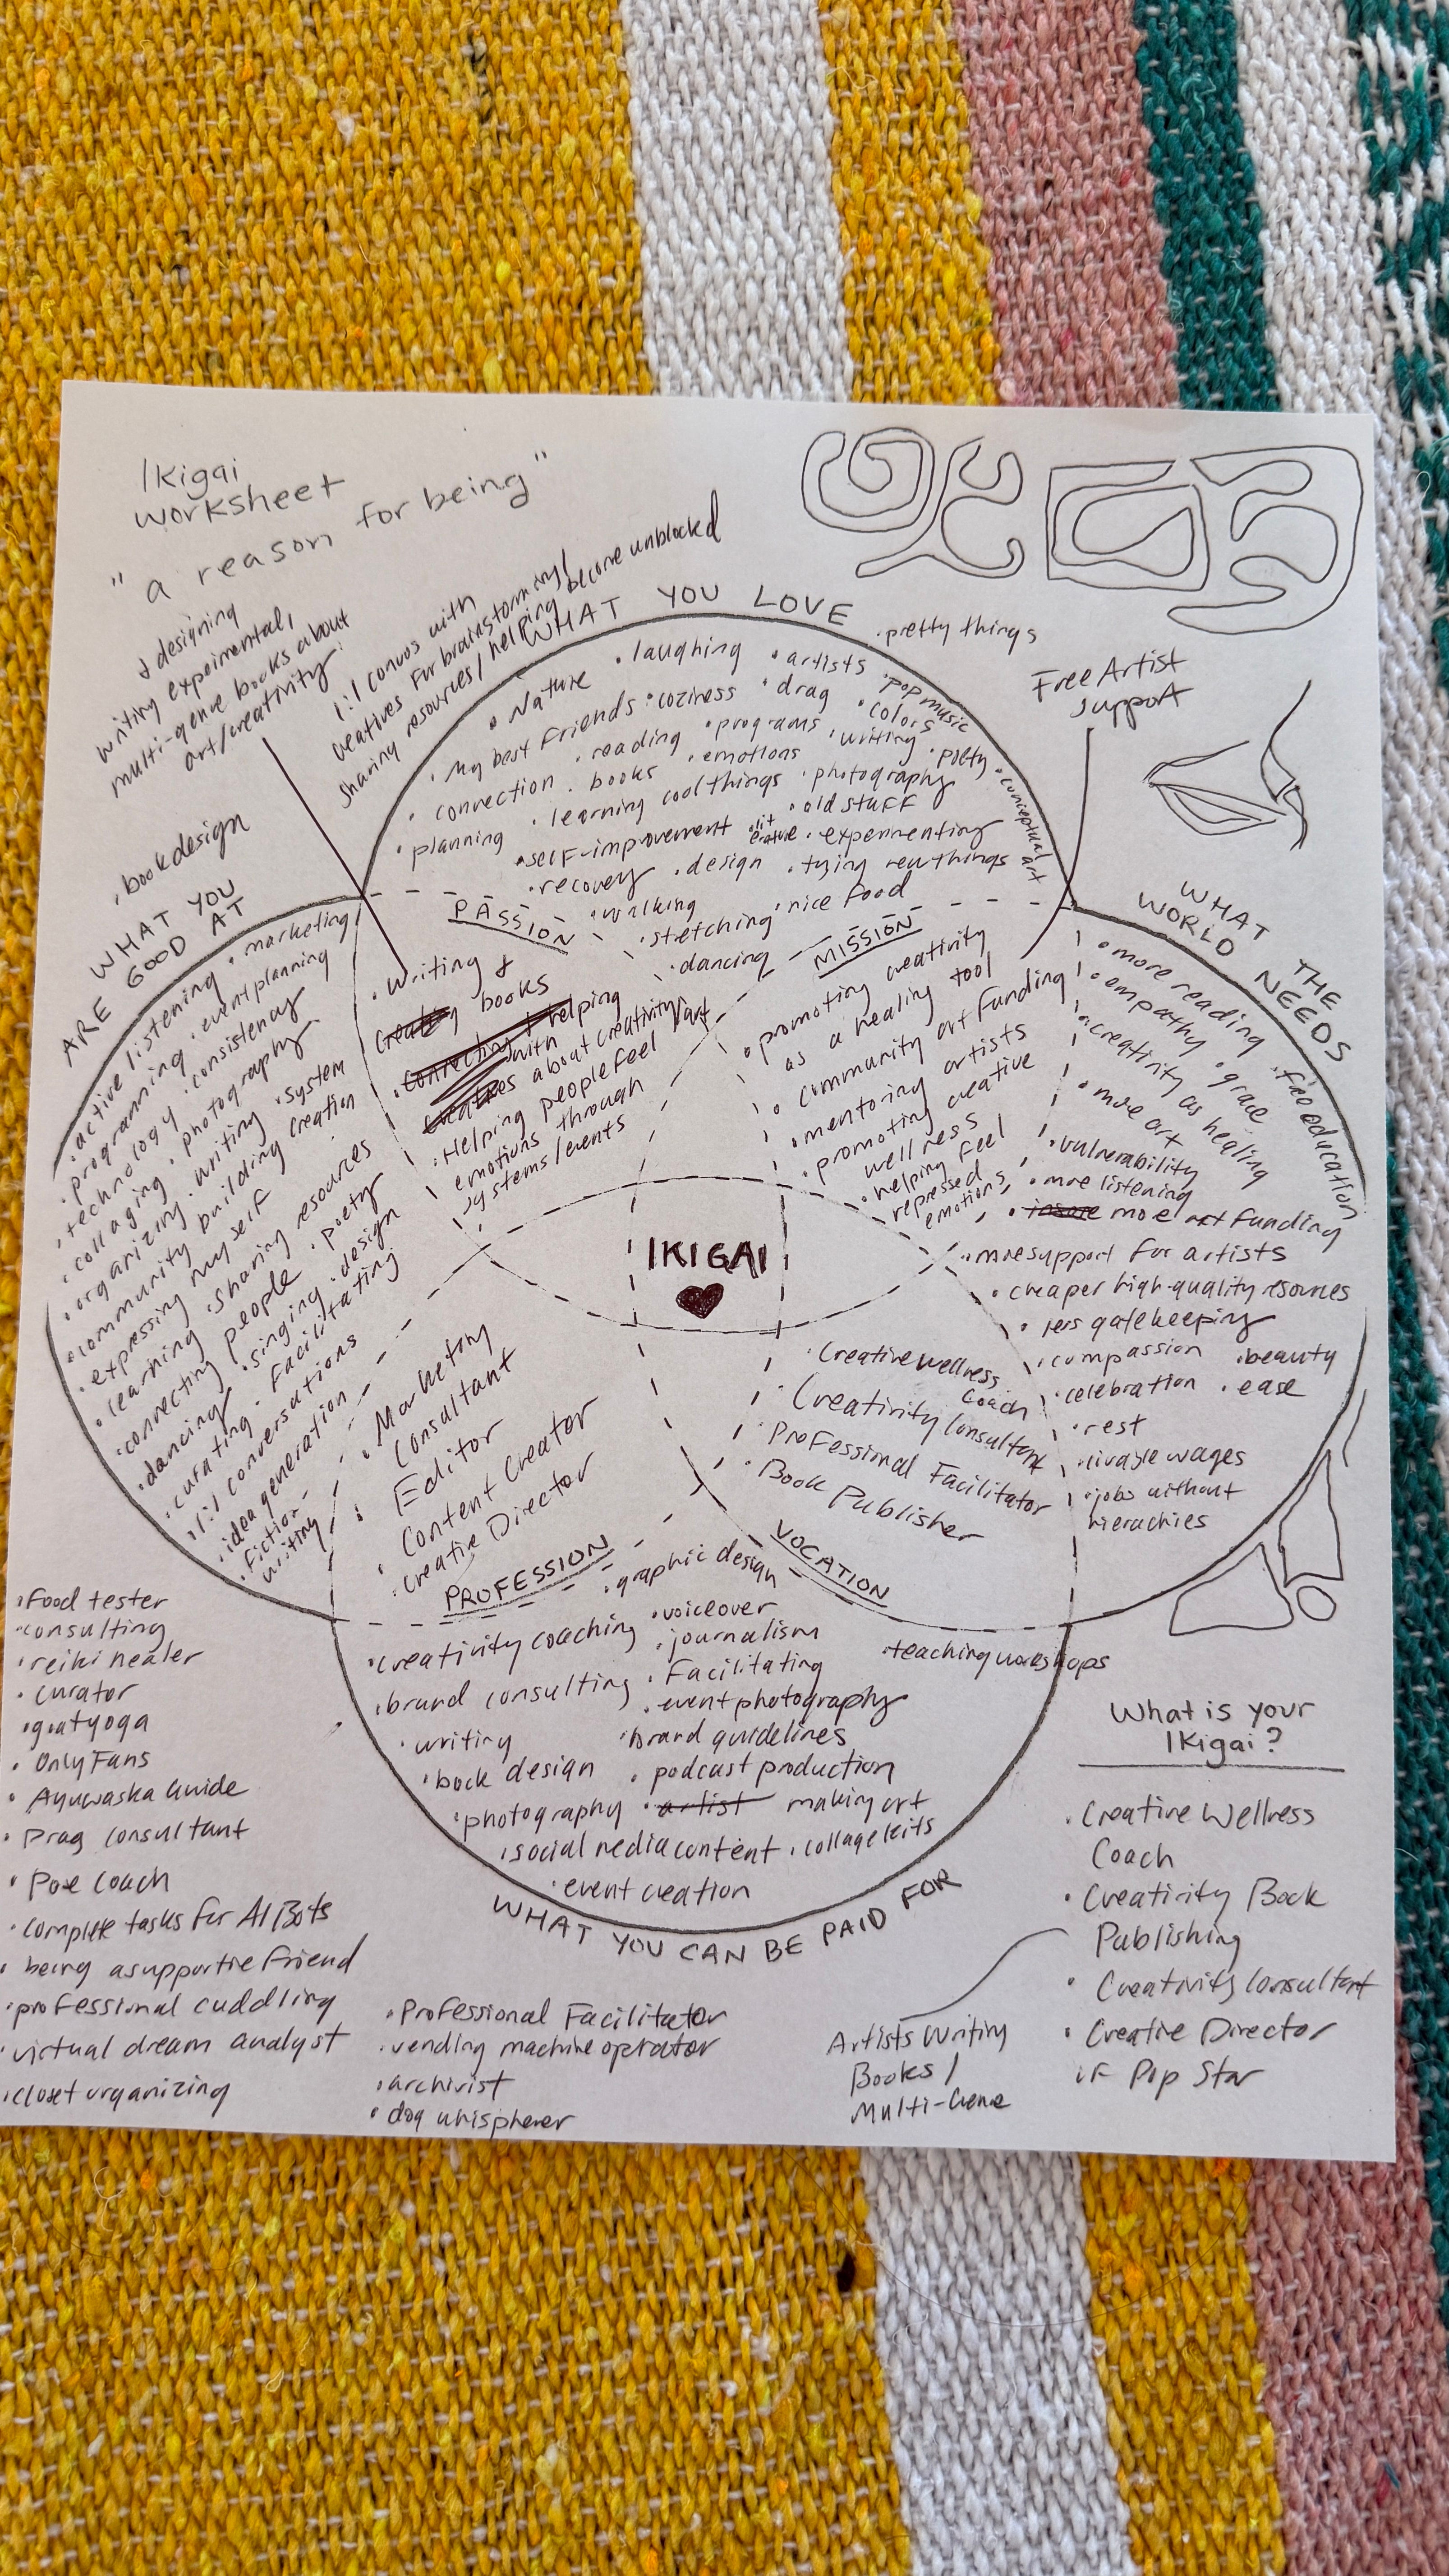 Ikigai
worksheet
"a reason for being"
& designing
writing expeimental,
multi-genre books about
art/creativity!
1:1 convos with
creatives for brainstorming/
sharing resources/helping become unblocked
WHAT YOU LOVE
• pretty things
• Nature
• laughing
• artists
• pop music
• My best friends
• coziness
• drag
• colors
• connection
• books
• reading
• programs
• emotions
• writing
• poety
• conceptual art
• planning
• learning cool things
• photography
• old stuff
• self-improvement
• experimenting
• recovery
• design
• trying new things
• walking
• stretching
• nice food
• dancing
Free Artist
support
• book design
WHAT YOU
ARE GOOD AT
• active listening
• marketing
• programming
• event planning
• technology
• consistency
• collaging
• photography
• organizing
• writing
• system
creation
• community building
• expressing myself
• learning
• sharing resources
• connecting people
• poety
• dancing
• singing
• design
• curating
• facilitating
• 1:1 conversations
• idea generation
• fiction
writing
PASSION
• Writing &
creating books
• Connecting helping
with
creatives about creativity/art
• Helping people feel
emotions through
systems/events
MISSION
• promoting creativity
as a healing tool
• community art funding
• mentoring artists
• promoting creative
wellness
• helping feel
repressed
emotions
WHAT THE
WORLD NEEDS
• more reading
• empathy
• grace
• free education
• creativity as healing
• more art
• vulnerability
• more listening
• more art funding
• more support for artists
• cheaper high-quality resources
• less gatekeeping
• compassion
• beauty
• celebration
• ease
• rest
• livable wages
• jobs without
hierachies
IKIGAI
• Marketing
Consultant
• Editor
• Content Creator
• Creative Director
PROFESSION
• Creative wellness
Coach
• Creativity Consultant
• Professional Facilitator
• Book Publisher
VOCATION
• graphic design
• creativity coaching
• voiceover
• journalism
• brand consulting
• Facilitating
• event photography
• writing
• brand guidelines
• book design
• podcast production
• photography
• artist making art
• social media content
• collage kits
• event creation
• teaching workshops
WHAT YOU CAN BE PAID FOR
• Food tester
• consulting
• reiki healer
• curator
• goat yoga
• OnlyFans
• Ayuwaska Guide
• Drag Consultant
• Pose Coach
• complete tasks for AI Bots
• being a supportive friend
• professional cuddling
• virtual dream analyst
• closet organizing
• Professional Facilitator
• vending machine operator
• archivist
• dog whispherer
What is your
Ikigai?
• Creative Wellness
Coach
• Creativity Book
Publishing
• Creativity Consultant
• Creative Director
if Pop Star
Artists Writing
Books/
Multi-Genre